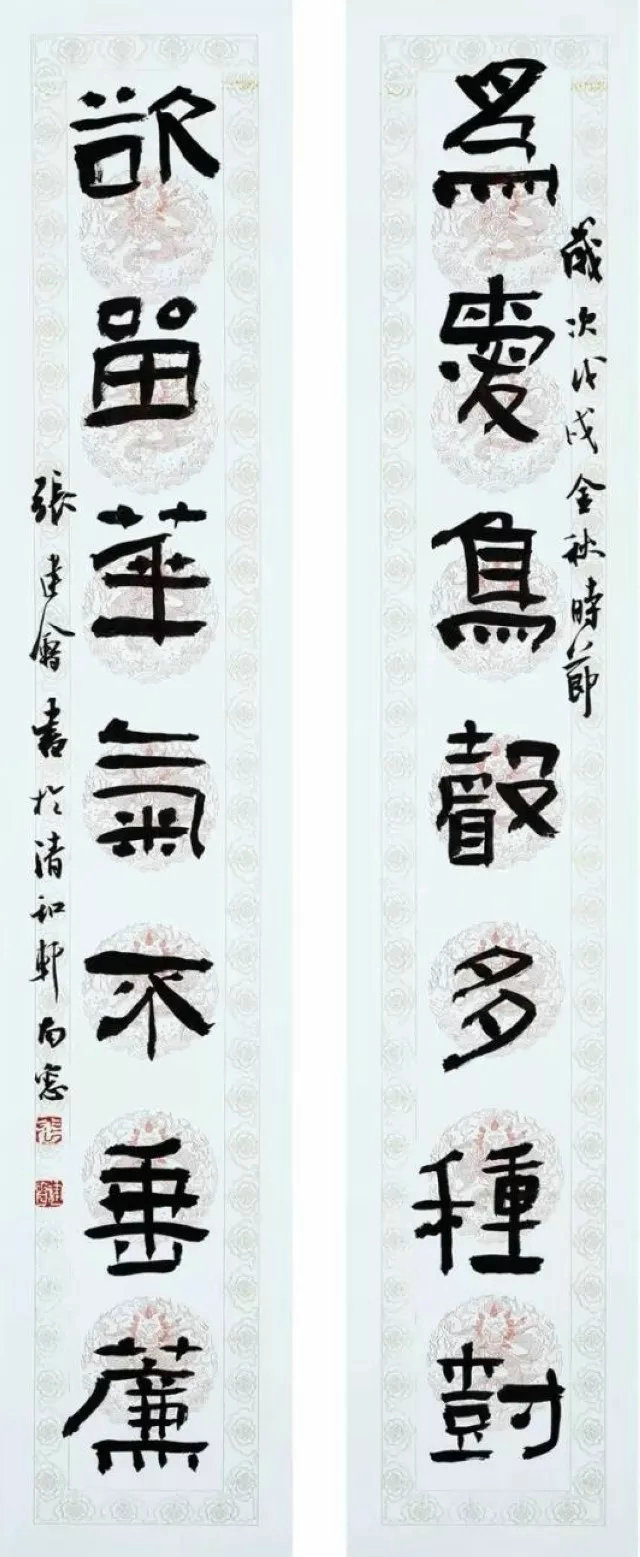 為愛鳥聲多種尌
歲次戊戌金秋時節
欲留華氣不垂薕
張建會書於清和軒南窓